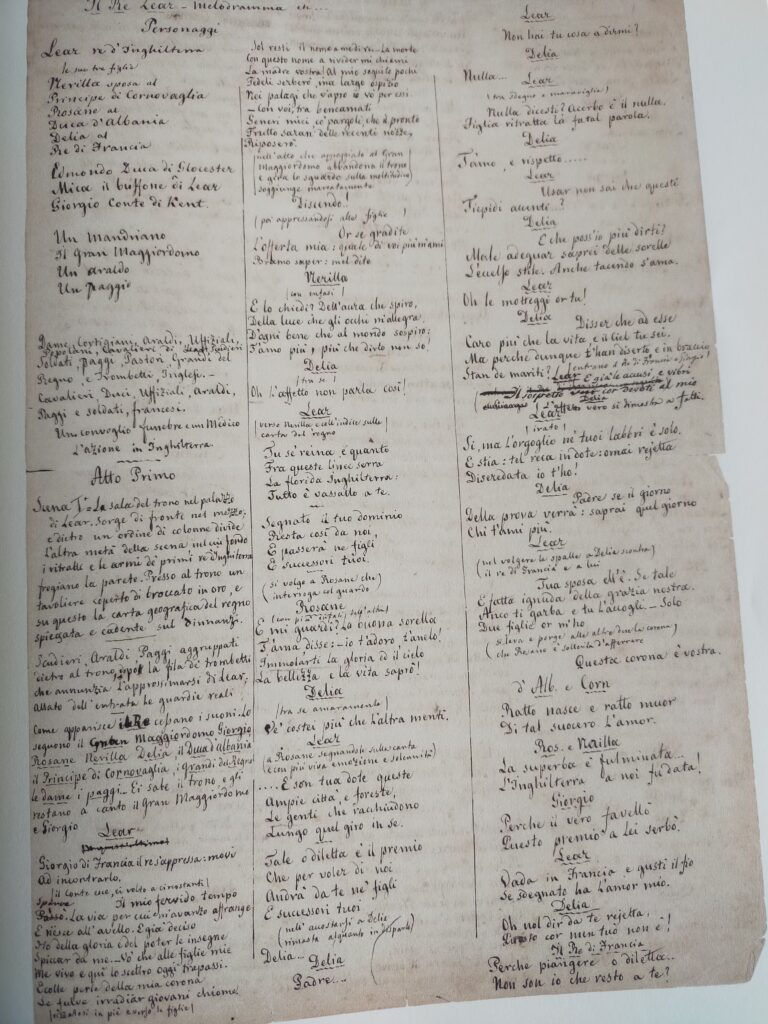 Il Re Lear – Melodramma in....
Personaggi
Lear re d'Inghilterra
le sue tre figlie
Nerilla sposa al
Principe di Cornovaglia
Rosane al
Duca d'Albania
Delia al
Re di Francia
Edmondo Duca di Glocester
Mica il buffone di Lear
Giorgio Conte di Kent.
Un Mandriano
Il Gran Maggiordomo
Un araldo
Un paggio
Dame, Cortigiani, Araldi, Uffiziali,
Popolani, Cavalieri di Lear, Scudieri
Soldati, paggi, Pastori, Grandi del
Regno, e Trombetti Inglesi. –
Cavalieri, Duci, Uffiziali, Araldi,
Paggi e soldati, francesi.
Un convoglio funebre e un Medico
L'azione in Inghilterra.
Atto Primo
Scena 1ª La sala del trono nel palazzo
di Lear. Sorge di fronte nel mezzo;
e dietro un ordine di colonne divide
l'altra metà della scena nel cui fondo
i vitralli e le armi de' primi re d'Inghilterra
fregiano la parete. Presso al trono un
tavoliere coperto di broccato in oro, e
su questo la carta geografica del regno
spiegata e cadente sul dinnanzi.
Scudieri, Araldi Paggi aggruppati
dietro al trono, la fila di trombetti
che annunzia l'approssimarsi di Lear;
allato dell'entrata le guardie reali
Come apparisce il Re cessano i suoni. Lo
seguono il Gran Maggiordomo Giorgio
Rosane Nerilla Delia, il Duca d'Albania
il Principe di Cornovaglia, i grandi del Regno
le dame i paggi... Ei sale il trono e gli
restano a canto il Gran Maggiordomo
e Giorgio
Lear
Giorgio di Francia il re s'appressa: movi
Ad incontrarlo.
(il conte esce, ei volto a' circostanti)
Il mio fervido tempo
Passo. La via per cui m'avanzo affrange
E riesce all'avello. E già deciso
Ho della gloria e del poter le insegne
Spiccar da me... Vo' che alle figlie mie
Me vivo e qui lo scettro oggi trapassi.
E colle perle della mia corona
Le fulve irradiar giovani chiome.
(rizzatosi in piè e verso le figlie)
Sol resti il nome a me di re. La morte
Con questo nome a riveder mi chiami
La madre vostra! Al mio seguito pochi
Fedeli serberò, ma largo ospizio
Nei palagi che v'apro io vo' per essi.
– Con voi, tra bencamati
Generi miei co' pargoli, che di pronto
Frutto saran delle recenti nozze,
Riposerò.
(nell'atto che appoggiato al Gran
Maggiordomo abbandona il trono
e gira lo sguardo sulla moltitudine
soggiunge marcatamente)
Discendo...
(poi appressandosi alle figlie)
Or se gradite
L'offerta mia: quale di voi più m'ami
Bramo saper: mel dite
Nerilla
(con enfasi)
E lo chiedi? Dell'aura che spiro,
Della luce che gli occhi n'allegra.
D'ogni bene che al mondo sospiro:
T'amo più, più che dirlo non so!
Delia
(tra se)
Oh l'affetto non parla così!
Lear
(verso Nerilla e coll'indice sulla
carta del regno
Tu se' reina, e quanto
Fra queste linee serra
La florida Inghilterra:
Tutto è vassallo a te.
Segnato il tuo dominio
Resta così da noi,
E passerà ne' figli
E successori tuoi.
(si volge a Rosane che)
(interroga col guardo
Rosane
E mi guardi? La buona sorella
T'ama disse: – io t'adoro, t'anelo!
Immolarti la gloria ed il cielo
La bellezza e la vita saprò!
Delia
(tra se amaramente)
Ve' costei più che l'altra menti.
Lear
(a Rosane segnandole sulla carta
(e con più viva emozione e solennità)
.... E son tua dote queste
Ampie città, e foreste,
Le genti che racchiudono
Lungo quel giro in se.
Tale o diletta è il premio
Che per voler di noi
Andrà da te ne' figli
E successori tuoi
(nell'accostarsi a Delia
(rimasta alquanto in disparte)
Delia...
Delia
Padre...
Lear
Non hai tu cosa a dirmi?
Delia
Nulla...
Lear
(tra sdegno e maraviglia)
Nulla dicesti? Acerbo è il nulla.
Figlia ritratta la fatal parola.
Delia
T'amo, e rispetto.....
Lear
Usar non sai che questi
Tiepidi accenti..?
Delia
E che poss'io più dirti?
Male adeguar saprei delle sorelle
L'eccelso stile. Anche tacendo s'ama.
Lear
Oh le motteggi or tu!
Delia
Disser che ad esse
Caro più che la vita, e il ciel tu sei.
Ma perchè dunque t'han diserto e in braccio
Stan de' mariti?
Lear
E già le accusi, e vibri
Delia
L'affetto vero si dimostra a' fatti.
Lear
(irato)
Sì, ma l'orgoglio ne' tuoi labbri è solo.
E stia: tel reca in dote: omai rejetta
Diseredata io t'ho!
Delia
Padre se il giorno
Della prova verrà: saprai quel giorno
Chi t'ami più.
Lear
(nel volgere le spalle a Delia scontra)
(il re di Francia e a lui
Tua sposa ell'è. Se tale
E fatta ignuda della grazia nostra.
Anco ti garba e tu l'accogli. – Solo
Due figlie or m'ho
(si leva e porge alle altre due la corona)
(che Rosane è sollecita d'afferrare
Questa corona è vostra.
d'Alb. e Corn
Ratto nasce e ratto muor
Di tal suocero l'amor.
Ros. e Nerilla
La superba è fulminata...
L'Inghilterra a noi fu data!
Giorgio
Perchè il vero favellò
Questo premio a lei serbò.
Lear
Vada in Francia e gusti il fio
Se sdegnato ha l'amor mio.
Delia
Oh nol dir da te rejetta,
Questo cor men tuo non è!
Il Re di Francia
Perchè piangere o diletta...
Non son io che resto a te?